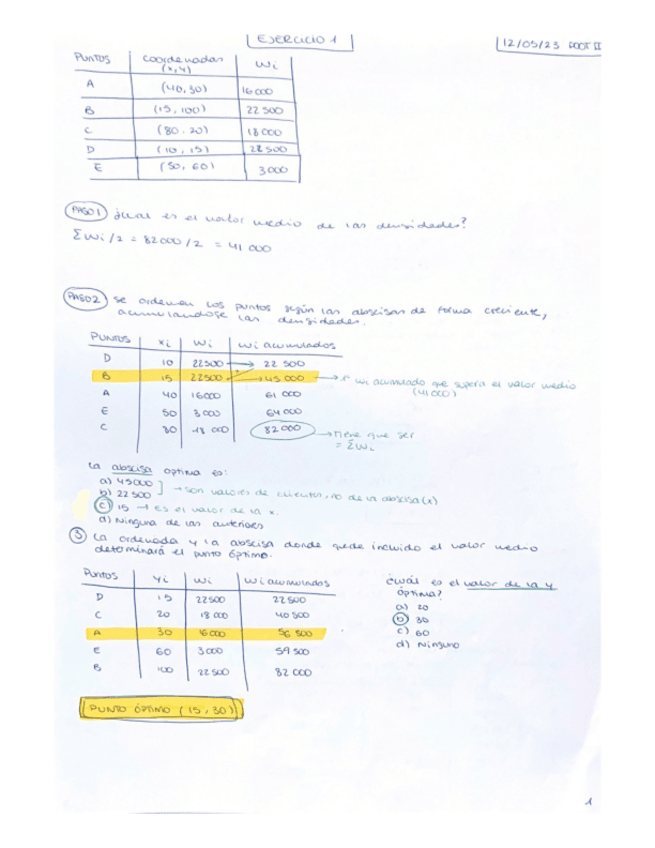 EJERCICIO 1
12/05/23 DOCT II
PUNTOS coordenadas (x,y) Wi
A (40,30) 16 000
B (15, 100) 22 500
C (80. 20) 18 000
D (10, 15) 22 500
E (50, 60) 3 000
PASO 1 ¿cual es el valor medio de las densidades?
ΣWi/2 = 82 000/2 = 41 000
PASO 2 se ordenan los puntos según las abscisas de forma creciente,
acumulandose las densidades.
PUNTOS xi Wi Wi acumulados
D 10 22500 → 22 500
B 15 22500 → 45 000 → 1º Wi acumulado que supera el valor medio
(41 000)
A 40 16000 61 000
E 50 3 000 64 000
C 80 18 000 82 000 → Tiene que ser
= ΣWi
La abscisa optima es:
a) 45000
b) 22 500 ] → son valores de clientes, no de la abscisa (x)
c) 15 → Es el valor de la x.
d) Ninguna de las anteriores
3 La ordenada y la abscisa donde quede incluido el valor medio
determinará el punto óptimo.
Puntos Yi Wi Wi acumulados
D 15 22500 22500
C 20 18 000 40 500
A 30 16000 56 500
E 60 3000 59 500
B 100 22 500 82 000
¿cuál es el valor de la y
óptima?
a) 20
b) 30
c) 60
d) Ninguno
PUNTO ÓPTIMO (15, 30)
1